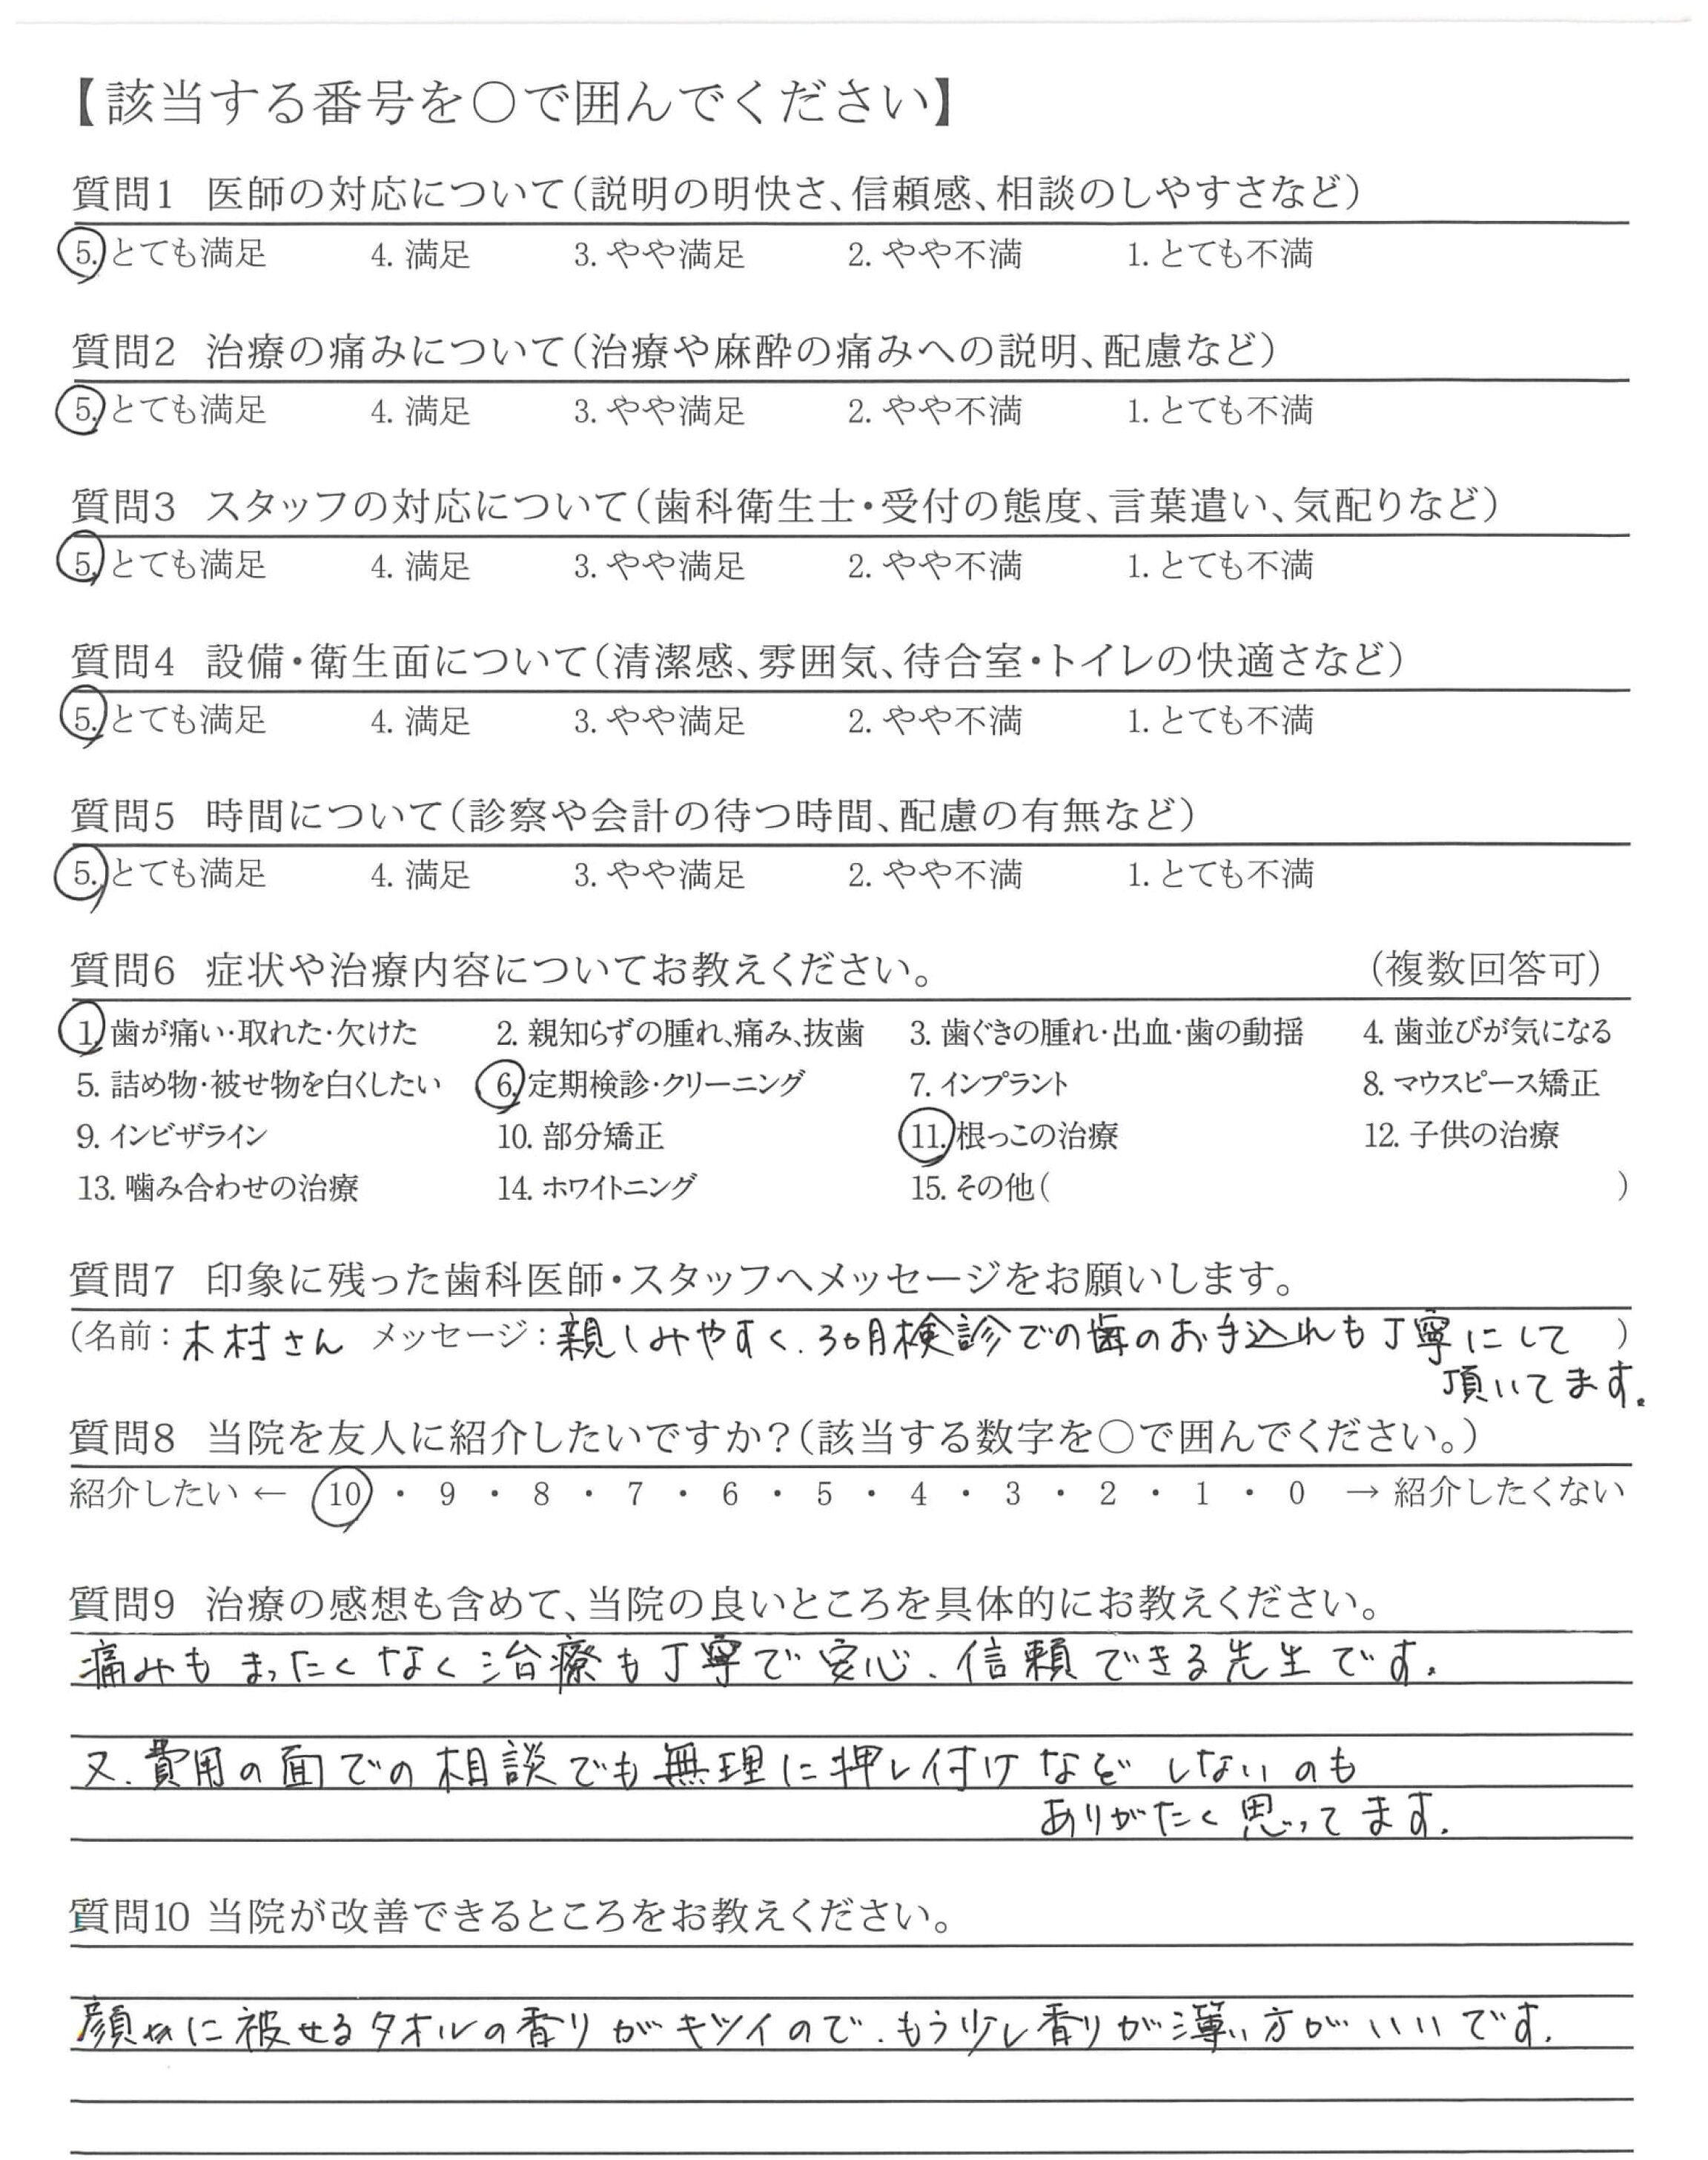 【該当する番号を○で囲んでください】
質問1 医師の対応について(説明の明快さ、信頼感、相談のしやすさなど)
5. とても満足 4. 満足 3. やや満足 2. やや不満 1. とても不満
質問2 治療の痛みについて(治療や麻酔の痛みへの説明、配慮など)
5. とても満足 4. 満足 3. やや満足 2. やや不満 1. とても不満
質問3 スタッフの対応について(歯科衛生士・受付の態度、言葉遣い、気配りなど)
5. とても満足 4. 満足 3. やや満足 2. やや不満 1. とても不満
質問4 設備・衛生面について(清潔感、雰囲気、待合室・トイレの快適さなど)
5. とても満足 4. 満足 3. やや満足 2. やや不満 1. とても不満
質問5 時間について(診察や会計の待つ時間、配慮の有無など)
5. とても満足 4. 満足 3. やや満足 2. やや不満 1. とても不満
質問6 症状や治療内容についてお教えください。 (複数回答可)
1. 歯が痛い・取れた・欠けた 2. 親知らずの腫れ、痛み、抜歯 3. 歯ぐきの腫れ・出血・歯の動揺 4. 歯並びが気になる
5. 詰め物・被せ物を白くしたい 6. 定期検診・クリーニング 7. インプラント 8. マウスピース矯正
9. インビザライン 10. 部分矯正 11. 根っこの治療 12. 子供の治療
13. 噛み合わせの治療 14. ホワイトニング 15. その他( )
質問7 印象に残った歯科医師・スタッフへメッセージをお願いします。
(名前:木村さん メッセージ:親しみやすく、3ヵ月検診での歯のお手込れも丁寧にして )
頂いてます。
質問8 当院を友人に紹介したいですか?(該当する数字を○で囲んでください。)
紹介したい ← 10 ・ 9 ・ 8 ・ 7 ・ 6 ・ 5 ・ 4 ・ 3 ・ 2 ・ 1 ・ 0 → 紹介したくない
質問9 治療の感想も含めて、当院の良いところを具体的にお教えください。
痛みもまったくなく治療も丁寧で安心、信頼できる先生です。
又、費用の面での相談でも無理に押し付けなどしないのも
ありがたく思ってます。
質問10 当院が改善できるところをお教えください。
顔に被せるタオルの香りがキツイので、もう少し香りが薄い方がいいです。